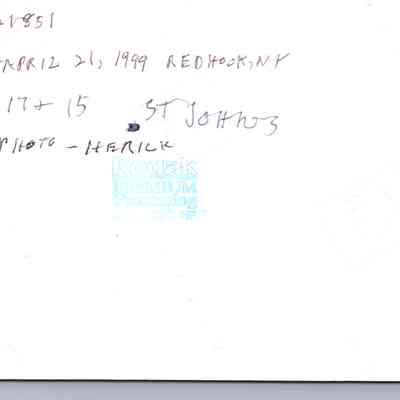 APRIL 21, 1999 RED HOOK, NY
17 + 15 ST JOHNS
PHOTO - HERICK
Kodak
PREMIUM
Processing